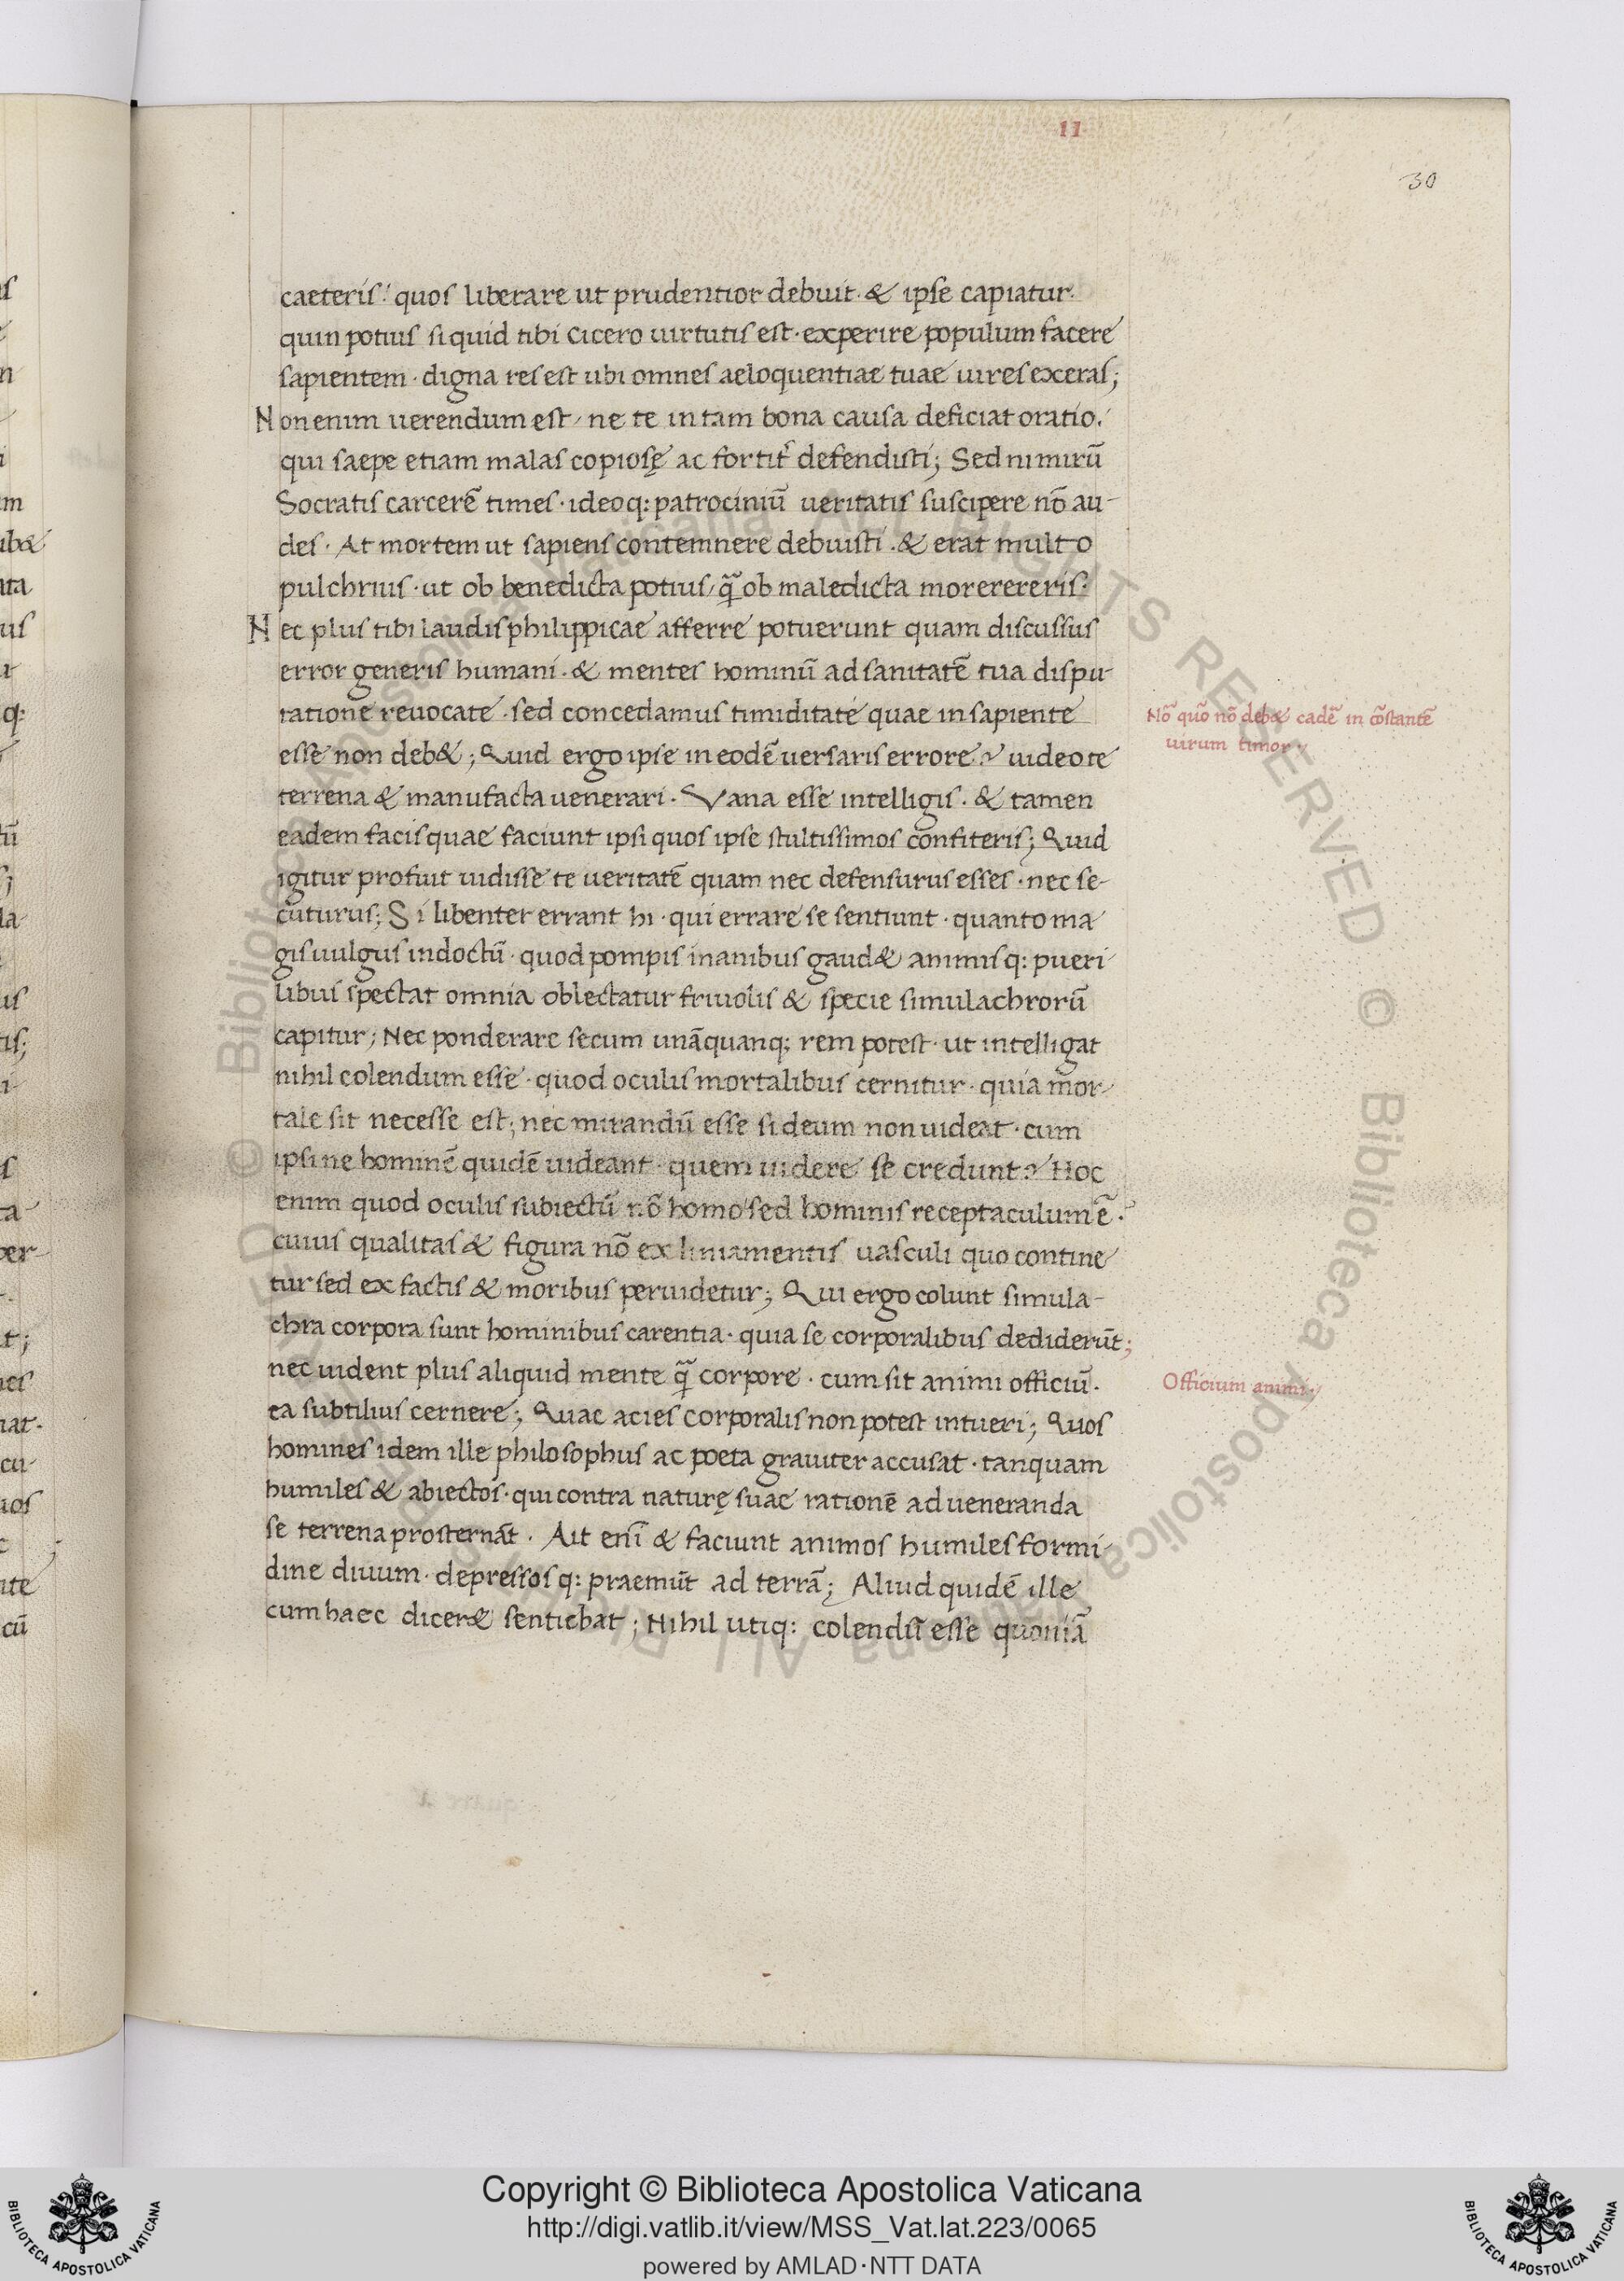 II
30
caeteris: quos liberare ut prudentior debuit · & ipse capiatur.
quin potius si quid tibi Cicero uirtutis est · experire populum facere
sapientem · digna res est ubi omnes aeloquentiae tuae uires exceras;
Non enim uerendum est, ne te in tam bona causa deficiat oratio.
qui saepe etiam malas copiosę ac fortiť defendisti; Sed nimirū
Socratis carcerē times · ideoq: patrociniū ueritatis suscipere nō au-
des · At mortem ut sapiens contemnere debuisti · & erat multo
pulchrius · ut ob benedicta potius, q̃ ob maledicta morerereris.
Nec plus tibi laudis philippicae afferre potuerunt quam discussus
error generis humani · & mentes hominū ad sanitatē tua dispu-
tatione reuocate · sed concedamus timiditate quae in sapiente
esse non deb&; Quid ergo ipse in eodē uersaris errore? uideo te
terrena & manufacta uenerari · Vana esse intelligis · & tamen
eadem facis quae faciunt ipsi quos ipse stultissimos confiteris; Quid
igitur profuit uidisse te ueritatē quam nec defensurus esses · nec se-
cuturus; Si libenter errant hi · qui errare se sentiunt · quanto ma
gis uulgus indoctū · quod pompis inanibus gaud& animisq: pueri
libus spectat omnia oblectatur friuolis & specie simulachrorū
capitur; Nec ponderare secum unāquanq; rem potest · ut intelligat
nihil colendum esse · quod oculis mortalibus cernitur · quia mor-
tale sit necesse est; nec mirandū esse si deum non uideat · cum
ipsi ne hominē quidē uideant · quem uidere se credunt? Hoc
enim quod oculis subiectū nō homo sed hominis receptaculum ē ·
cuius qualitas & figura nō ex liniamentis uasculi quo contine
tur sed ex factis & moribus peruidetur; Qui ergo colunt simula-
chra corpora sunt hominibus carentia · quia se corporalibus dediderūt;
nec uident plus aliquid mente q̃ corpore · cum sit animi officiū ·
ea subtilius cernere; Quae acies corporalis non potest intueri; Quos
homines idem ille philosophus ac poeta grauiter accusat · tanquam
humiles & abiectos · qui contra naturę suae rationē ad ueneranda
se terrena prosternāt · Ait enī & faciunt animos humiles formi-
dine diuum · depressosq: praemūt ad terrā; Aliud quidē ille
cum haec dicer& sentiebat; Nihil utiq: colendū esse quoniā
Nō quō nō deb& cadē in cōstantē
uirum timor
Officium animi
Copyright © Biblioteca Apostolica Vaticana
http://digi.vatlib.it/view/MSS_Vat.lat.223/0065
powered by AMLAD·NTT DATA
BIBLIOTECA APOSTOLICA VATICANA
BIBLIOTECA APOSTOLICA VATICANA